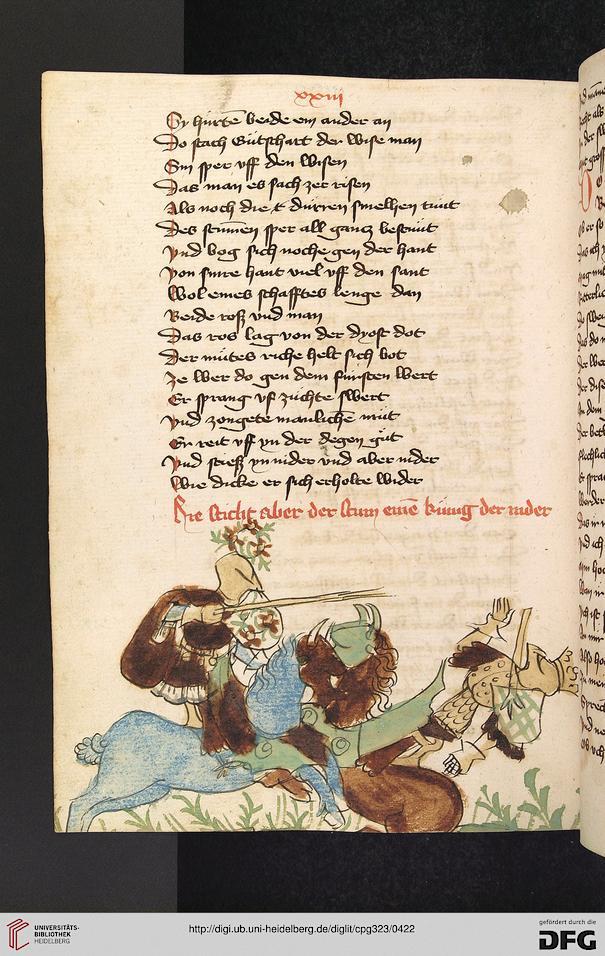 xxiii
Sy hürtē beide ein ander an
Do stach Gütschart der wise man
Sin sper vff den wisen
Das man es sach zer risen
Als noch die dürren smelhen tuͦnt
Des stumen sper all gancz bestuͦnt
Vnd bog sich noche gen der hant
Von sinre hant viel vff den sant
Wol eines schafftes lenge dan
Beide roß vnd man
Das ros lag von der dyost dot
Der muͦtes riche helt sich bot
Ze wer do gen dem fürsten wert
Er sprang vf zuchte swert
Vnd zongete manlichē muͦt
Er reit vff yn der degen guͦt
Vnd stieß yn nider vnd aber nider
Wie dicke er sich erholte wider
Hie sticht aber der stum einē künig der nider
UNIVERSITÄTS-
BIBLIOTHEK
HEIDELBERG
http://digi.ub.uni-heidelberg.de/diglit/cpg323/0422
gefördert durch die
DFG